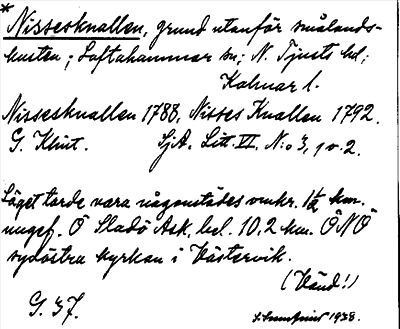 * Nissesknallen, grund utanför smålands-
kusten; Loftahammar sn; N. Tjusts hd;
Kalmar l.
Nissesknallen 1788, Nisses Knallen 1792.
G. Klint. SjA. Litt. VI. N:o 3, 1 o. 2.
Läget torde vara någonstädes omkr. 1½ km.
ungef. Ö Sladö Ask, bel. 10,2 km. ÖNÖ
sydöstra kyrkan i Västervik.
(Vänd!)
G. 37. 1938.